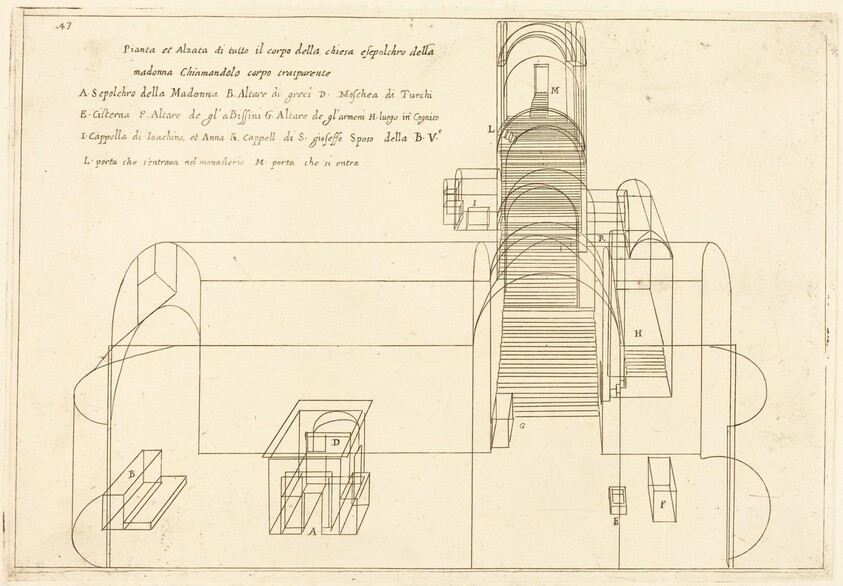 .47
Pianta et Alzata di tutto il corpo della chiesa esepolchro della
madonna Chiamandolo corpo trasparente
A Sepolchro della Madonna B. Altare di greci D. Moschea di Turchi
E. Cisterna F. Altare de gl'aBissini G. Altare de gl'armeni H. luogo in Cognito
I. Cappella di Ioachino, et Anna R. Cappell di S. gioseffo Sposo della B. V.e
L. porta che s'entraua nel monasterio M. porta che si entra
M
L
I
R
H
D
G
B
A
E
F